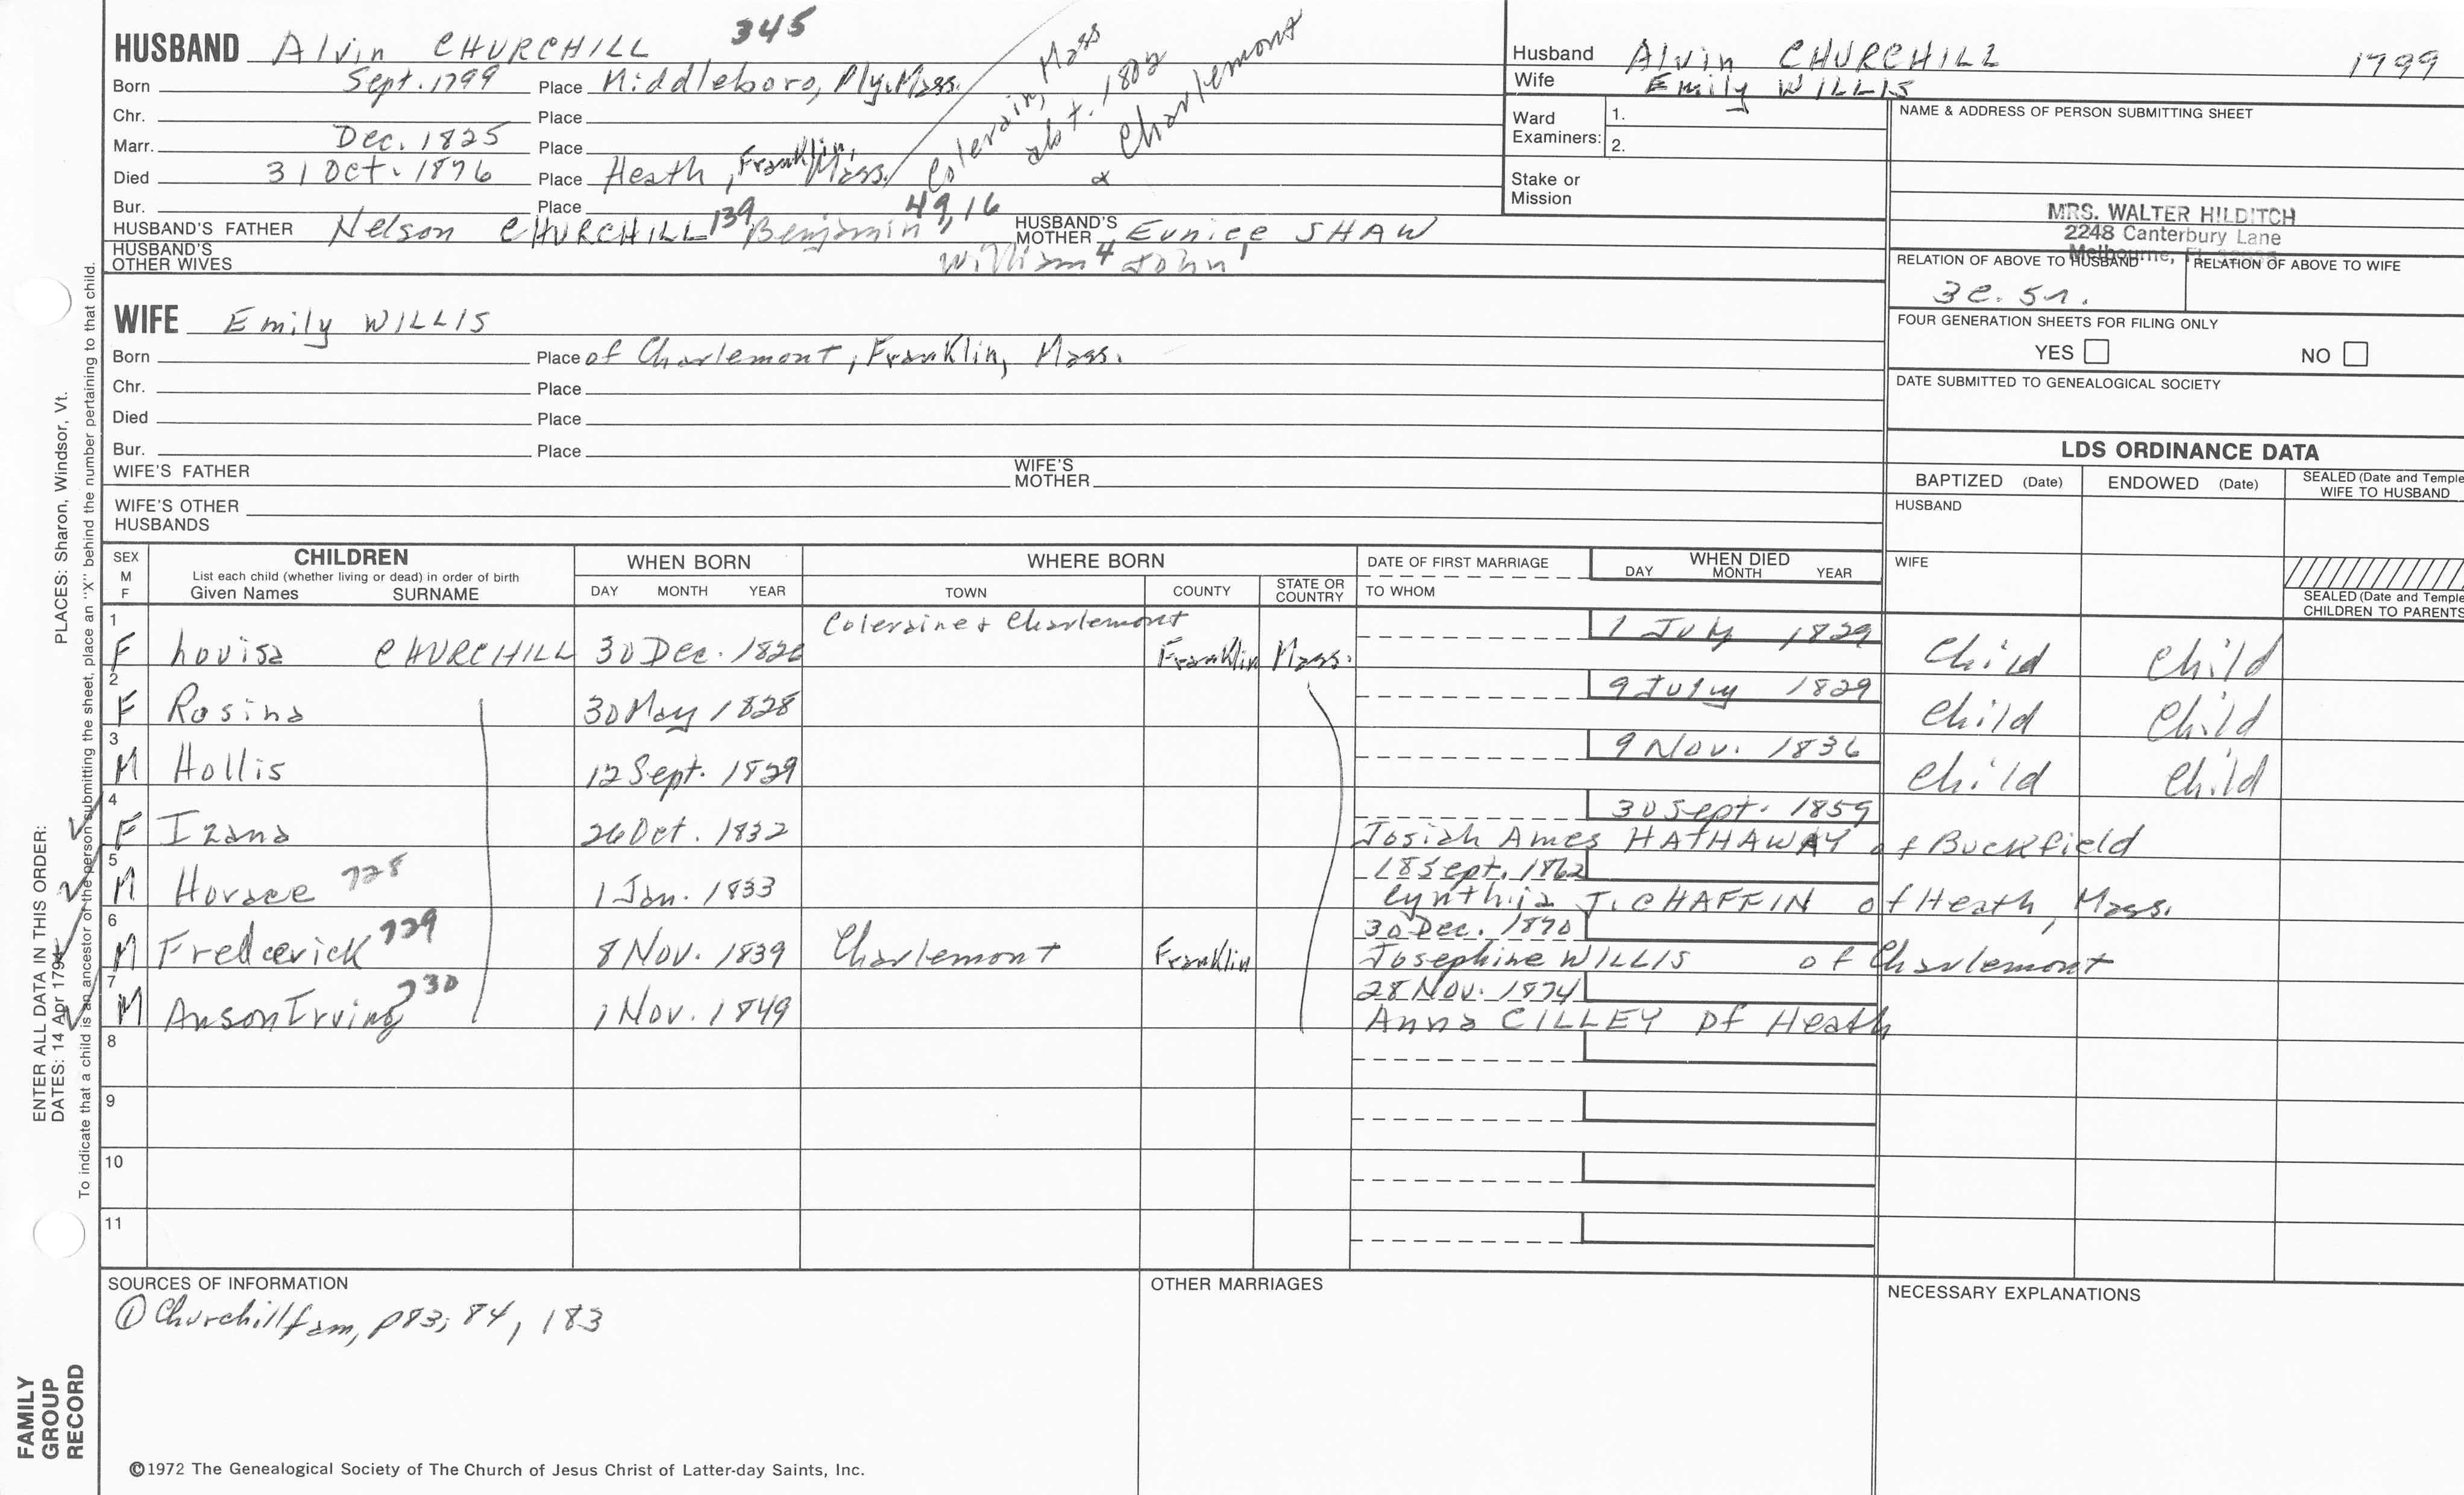 HUSBAND Alvin CHURCHILL 345
Born Sept. 1799 Place Middleboro, Ply. Mass. / Colerain, Mass abt. 1802 & Charlemont
Chr. Place
Marr. Dec. 1825 Place
Died 31 Oct. 1876 Place Heath, Franklin, Mass.
Bur. Place
HUSBAND'S FATHER Nelson CHURCHILL 139, Benjamin 49, 16 HUSBAND'S MOTHER Eunice SHAW
HUSBAND'S OTHER WIVES William 4 John 1
WIFE Emily WILLIS
Born Place of Charlemont, Franklin, Mass.
Chr. Place
Died Place
Bur. Place
WIFE'S FATHER WIFE'S MOTHER
WIFE'S OTHER HUSBANDS
Husband Alvin CHURCHILL 1799
Wife Emily WILLIS
Ward Examiners: 1.
2.
Stake or Mission
NAME & ADDRESS OF PERSON SUBMITTING SHEET
MRS. WALTER HILDITCH
2248 Canterbury Lane
Melbourne,
RELATION OF ABOVE TO HUSBAND RELATION OF ABOVE TO WIFE
3c. 5r.
FOUR GENERATION SHEETS FOR FILING ONLY
YES NO
DATE SUBMITTED TO GENEALOGICAL SOCIETY
LDS ORDINANCE DATA
BAPTIZED (Date) ENDOWED (Date) SEALED (Date and Temple WIFE TO HUSBAND
HUSBAND
WIFE
SEALED (Date and Temple CHILDREN TO PARENTS
SEX M F CHILDREN List each child (whether living or dead) in order of birth Given Names SURNAME WHEN BORN DAY MONTH YEAR WHERE BORN TOWN COUNTY STATE OR COUNTRY DATE OF FIRST MARRIAGE TO WHOM WHEN DIED DAY MONTH YEAR
1 F Lovisa CHURCHILL 30 Dec. 1826 Coleraine & Charlemont Franklin Mass. 1 July 1829 Child Child
2 F Rosina 30 May 1828 9 July 1829 Child Child
3 M Hollis 12 Sept. 1829 9 Nov. 1836 Child Child
4 F Izana 26 Oct. 1832 30 Sept. 1859
Josiah Ames HATHAWAY of Buckfield
5 M Horace 728 1 Jan. 1833 18 Sept. 1862
Cynthia J. CHAFFIN of Heath, Mass.
6 M Frederick 729 8 Nov. 1839 Charlemont Franklin 30 Dec. 1870
Josephine WILLIS of Charlemont
7 M Anson Irving 730 1 Nov. 1849 28 Nov. 1874
Anna CILLEY of Heath
8
9
10
11
SOURCES OF INFORMATION
① Churchill fam, p83; 84, 183
OTHER MARRIAGES
NECESSARY EXPLANATIONS
©1972 The Genealogical Society of The Church of Jesus Christ of Latter-day Saints, Inc.
ENTER ALL DATA IN THIS ORDER:
DATES: 14 Apr 1794 PLACES: Sharon, Windsor, Vt.
To indicate that a child is an ancestor of the person submitting the sheet, place an "X" behind the number pertaining to that child.
FAMILY
GROUP
RECORD